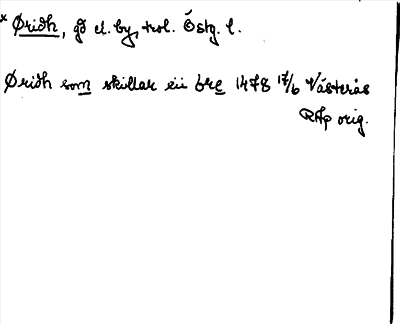 * Øridh, gd el. by, trol. Östg. l.
Øridh som skillar eii bre 1478 17/6 Västerås
RAp orig.